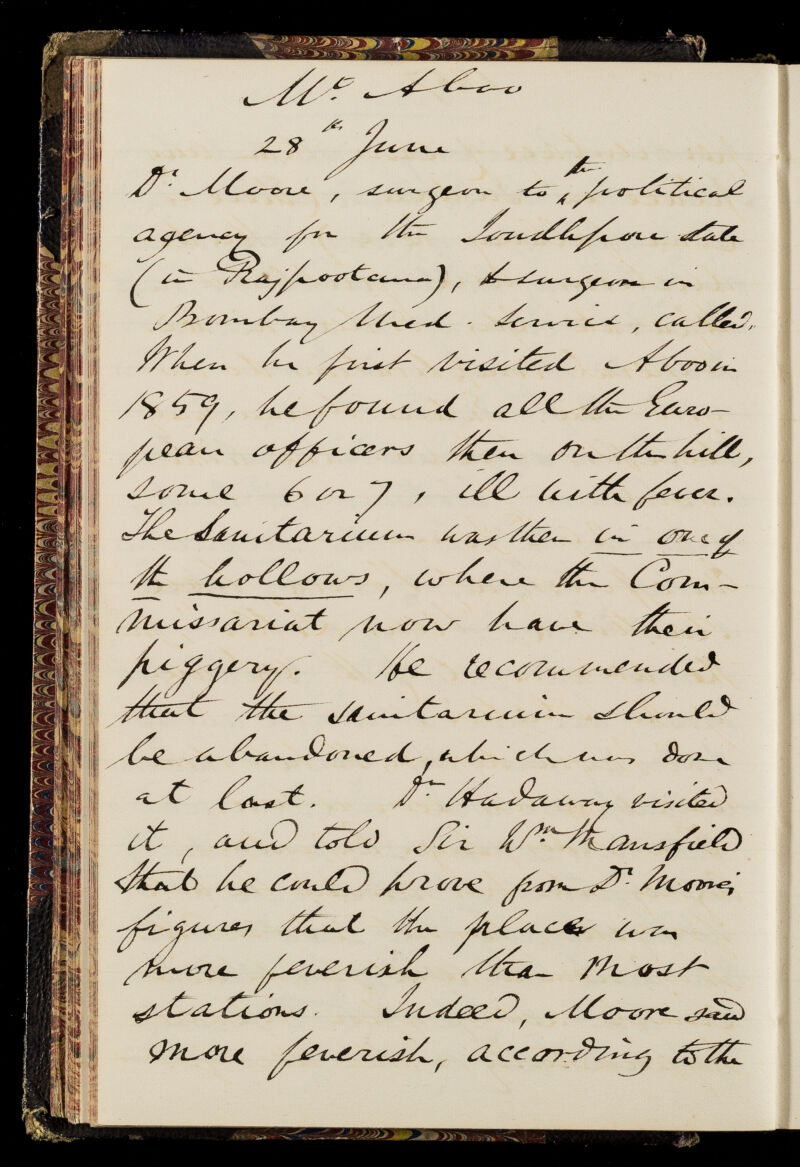 Mt. Aboo
28th June
Dr Moore, surgeon to the political
agency for the Joudhpore state
(in Rajpootana), & surgeon in
Bombay Med. Service, called.
When he first visited Aboo in
1859, he found all the Euro-
pean officers then on the hill,
some 6 or 7, ill with fever.
The Sanitarium was then in one of
the hollows, where the Com-
missariat now have their
piggery. He recommended
that the sanitarium should
be abandoned, which was done
at last. Dr Hadaway visited
it, and told Sir Wm Mansfield
that he could prove from Dr Moore's
figures that the place was
more feverish than most
stations. Indeed, Moore said
more feverish, according to the